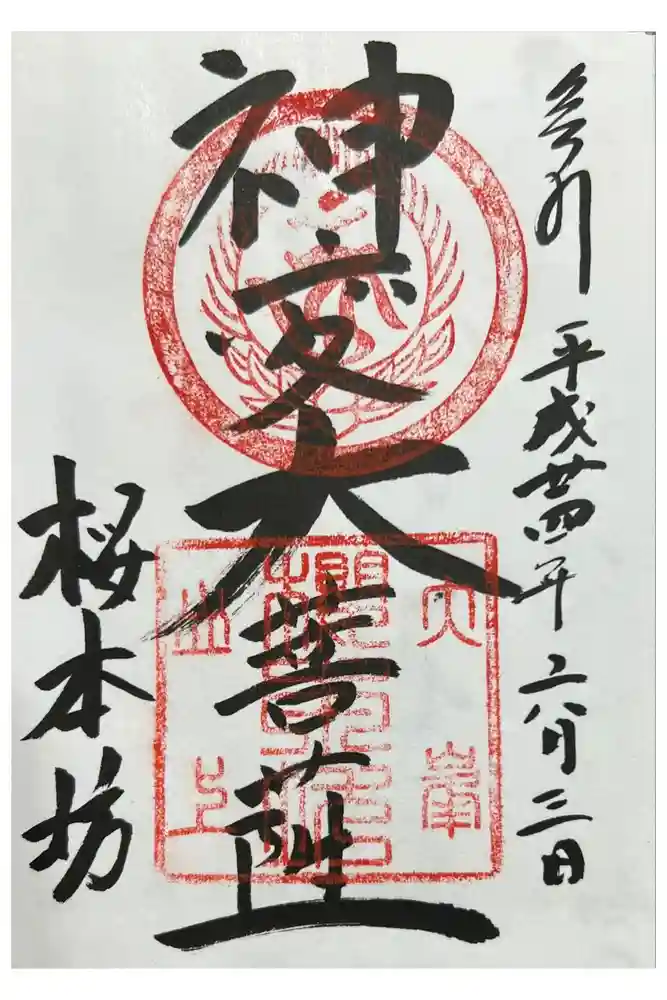 平成廿四年六月三日
神変大菩薩
大峯
山上
桜本坊